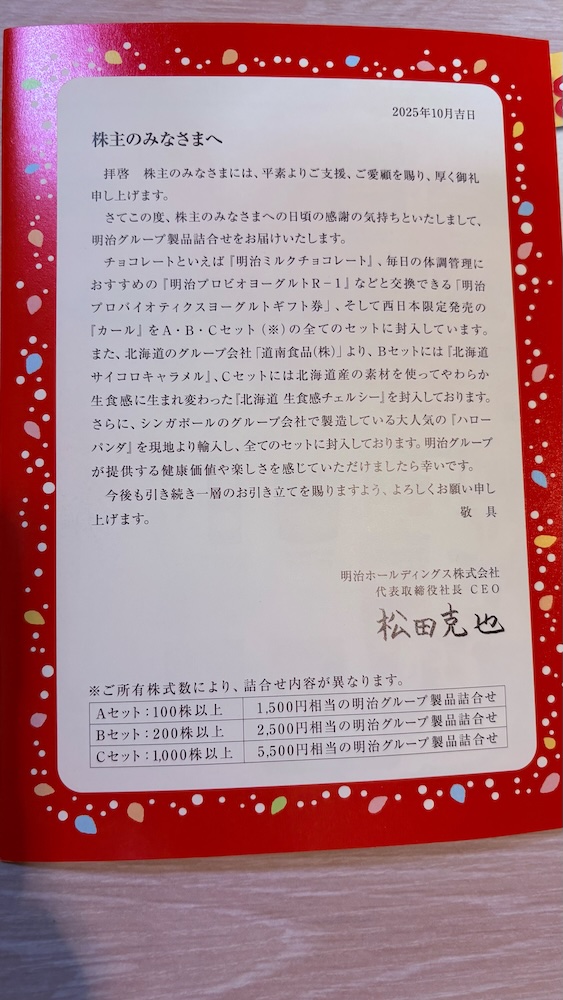 2025年10月吉日
株主のみなさまへ
拝啓　株主のみなさまには、平素よりご支援、ご愛顧を賜り、厚く御礼
申し上げます。
さてこの度、株主のみなさまへの日頃の感謝の気持ちといたしまして、
明治グループ製品詰合せをお届けいたします。
チョコレートといえば『明治ミルクチョコレート』、毎日の体調管理に
おすすめの『明治プロビオヨーグルトR－1』などと交換できる「明治
プロバイオティクスヨーグルトギフト券」、そして西日本限定発売の
『カール』をA・B・Cセット（※）の全てのセットに封入しています。
また、北海道のグループ会社「道南食品（株）」より、Bセットには『北海道
サイコロキャラメル』、Cセットには北海道産の素材を使ってやわらか
生食感に生まれ変わった『北海道 生食感チェルシー』を封入しております。
さらに、シンガポールのグループ会社で製造している大人気の『ハロー
パンダ』を現地より輸入し、全てのセットに封入しております。明治グループ
が提供する健康価値や楽しさを感じていただけましたら幸いです。
今後も引き続き一層のお引き立てを賜りますよう、よろしくお願い申し
上げます。　敬　具
明治ホールディングス株式会社
代表取締役社長 CEO
松田克也
※ご所有株式数により、詰合せ内容が異なります。
Aセット：100株以上　1,500円相当の明治グループ製品詰合せ
Bセット：200株以上　2,500円相当の明治グループ製品詰合せ
Cセット：1,000株以上　5,500円相当の明治グループ製品詰合せ